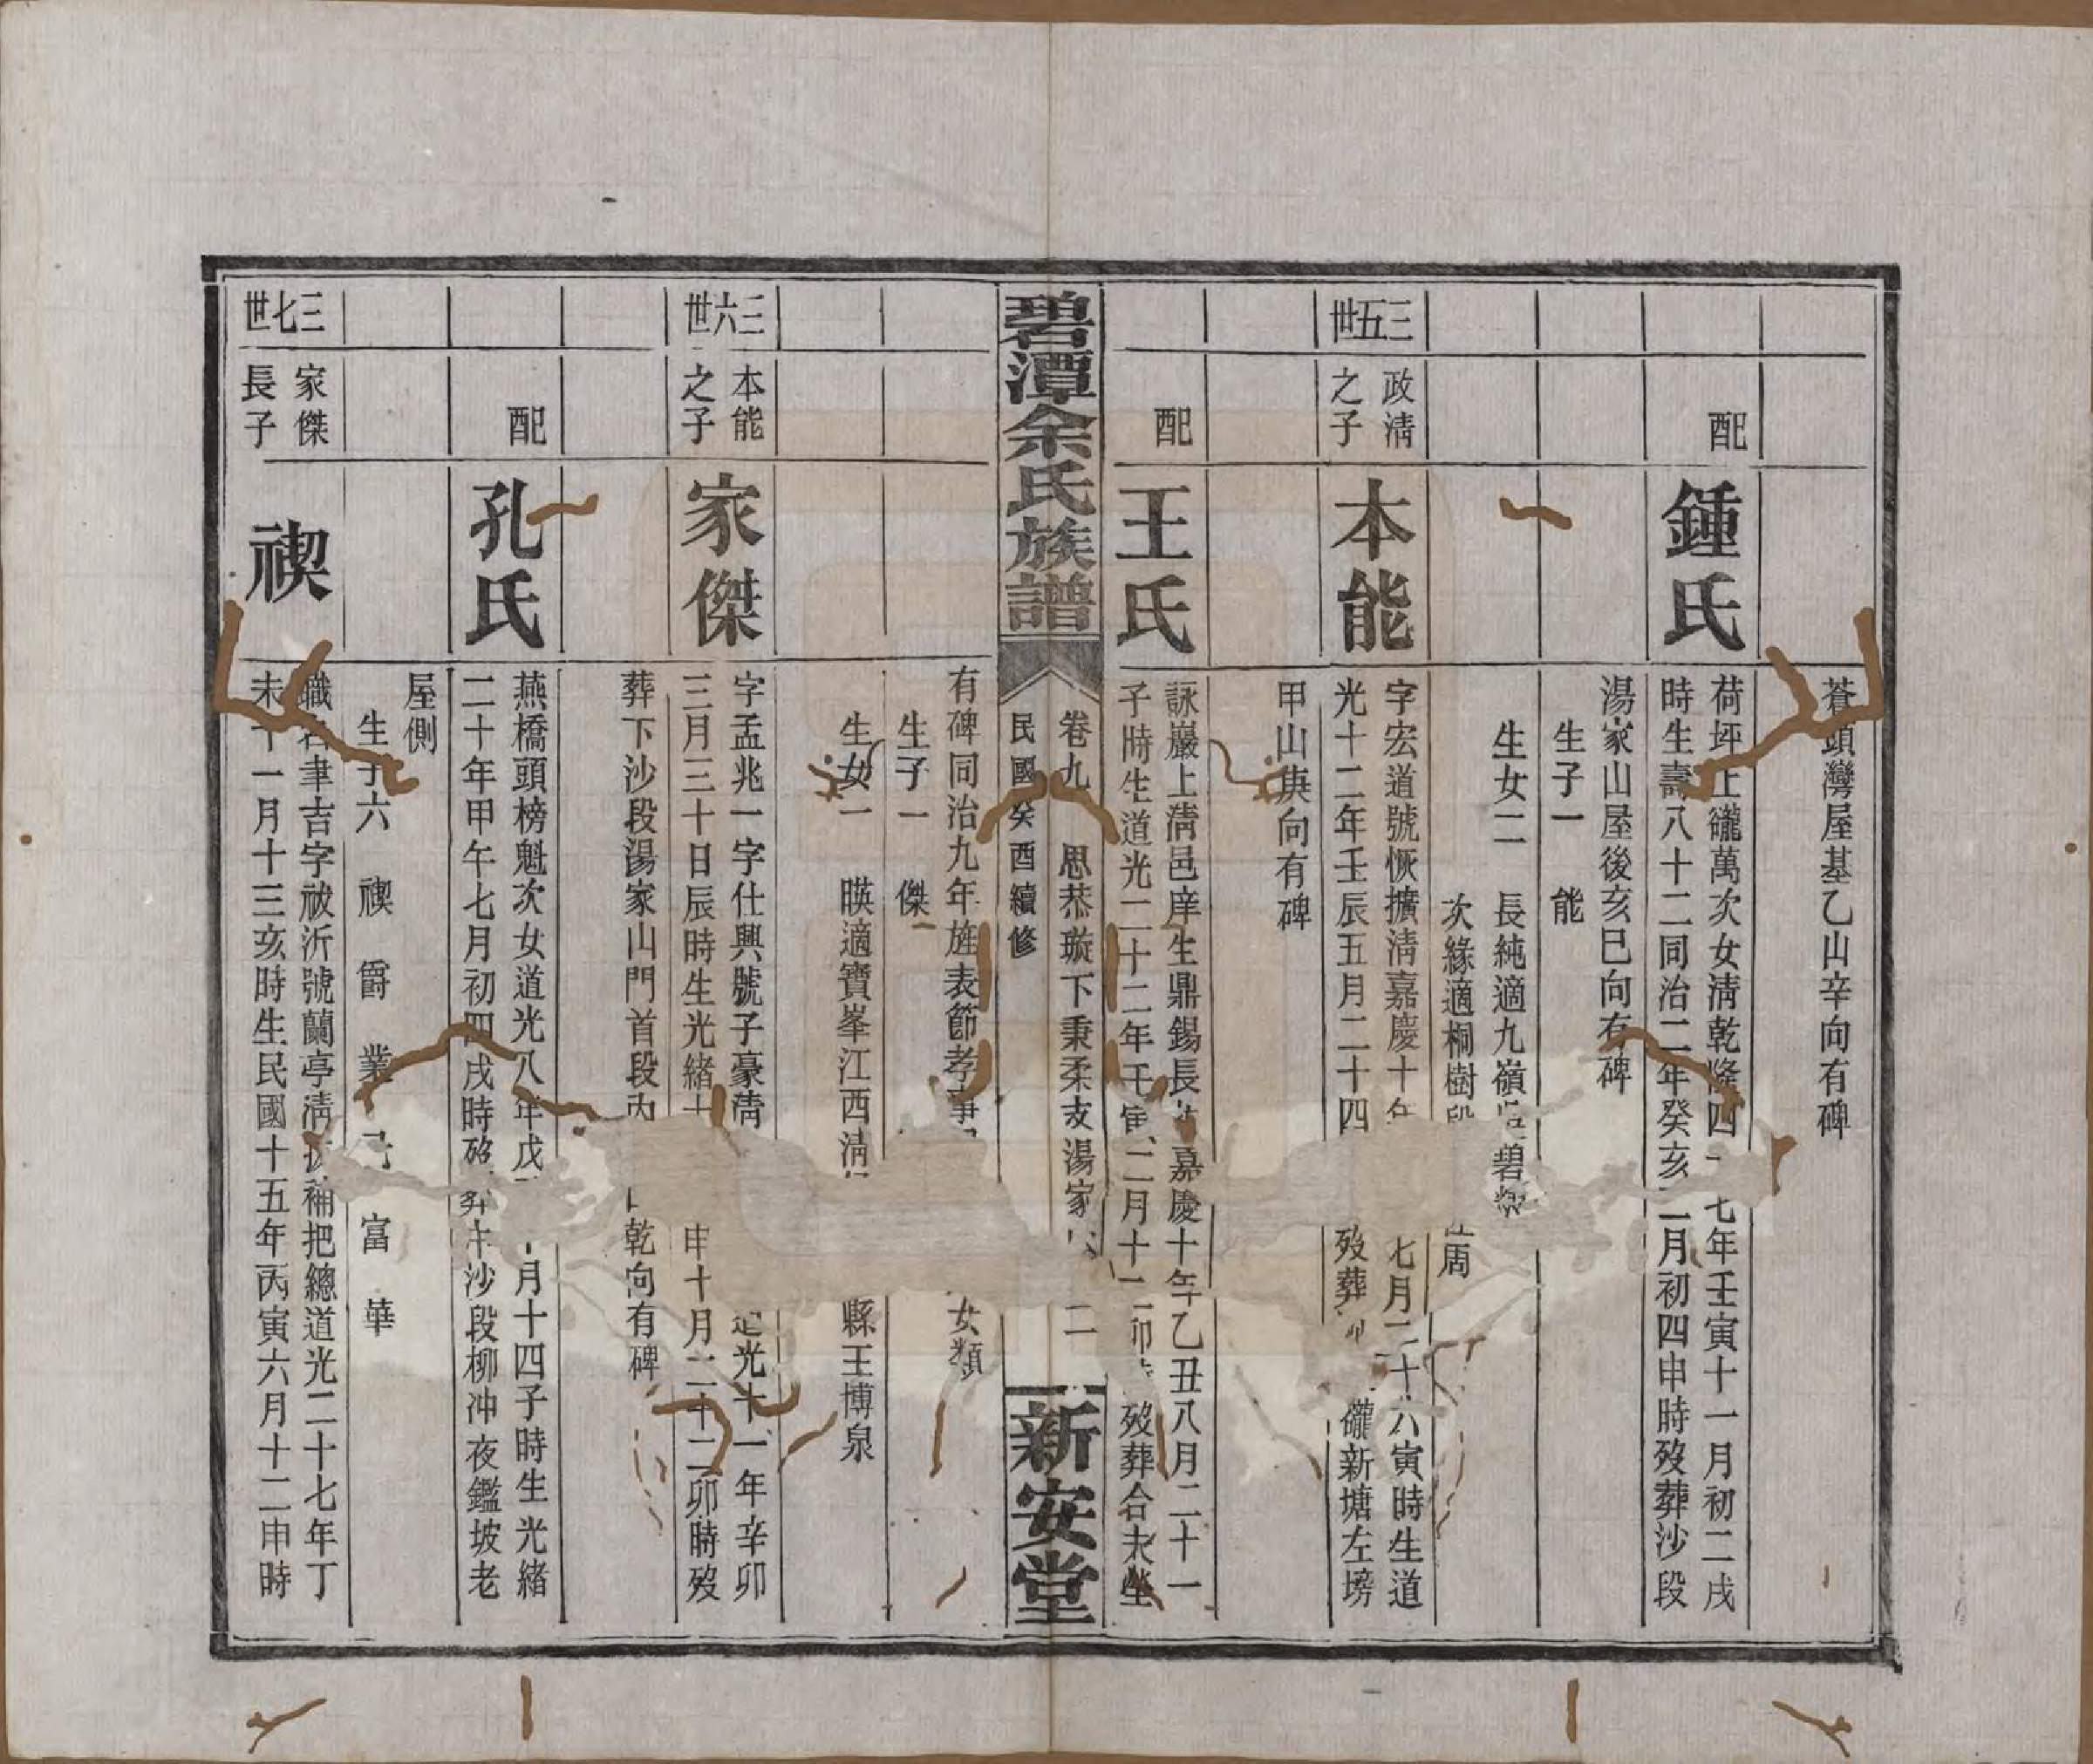 蒼頭灣屋基乙山辛向有碑
配
鍾氏
荷坪上䃧萬次女清乾隆四十七年壬寅十一月初二戌
時生壽八十二同治二年癸亥二月初四申時歿葬沙段
湯家山屋後亥巳向有碑
生子一　能
生女二　長純適九嶺
次緣適桐樹段
周
三五世
政清之子
本能
字宏道號恢擴清嘉慶十年　七月二十六寅時生道
光十二年壬辰五月二十四　歿葬　䃧新塘左塝
甲山庚向有碑
配
王氏
詠巖上清邑庠生鼎錫長女嘉慶十年乙丑八月二十一
子時生道光二十二年壬寅二月十二卯時歿葬合夫塋
碧潭余氏族譜
卷九　思恭璇下秉柔支湯家　二
民國癸酉續修
新安堂
有碑同治九年旌表節孝事　女類
生子一　傑
生女一　暎適寶峯江西清　縣王博泉
三六世
本能之子
家傑
字孟兆一字仕興號子豪清　道光十一年辛卯
三月三十日辰時生光緒　申十月二十二卯時歿
葬下沙段湯家山門首段　乾向有碑
配
孔氏
燕橋頭榜魁次女道光八年戊　月十四子時生光緒
二十年甲午七月初四戌時歿葬　沙段柳冲夜鑑坡老
屋側
生子六　禊　爵　業　　富　華
三七世
家傑長子
禊
職名聿吉字祓沂號蘭亭清　補把總道光二十七年丁
未十一月十三亥時生民國十五年丙寅六月十二申時